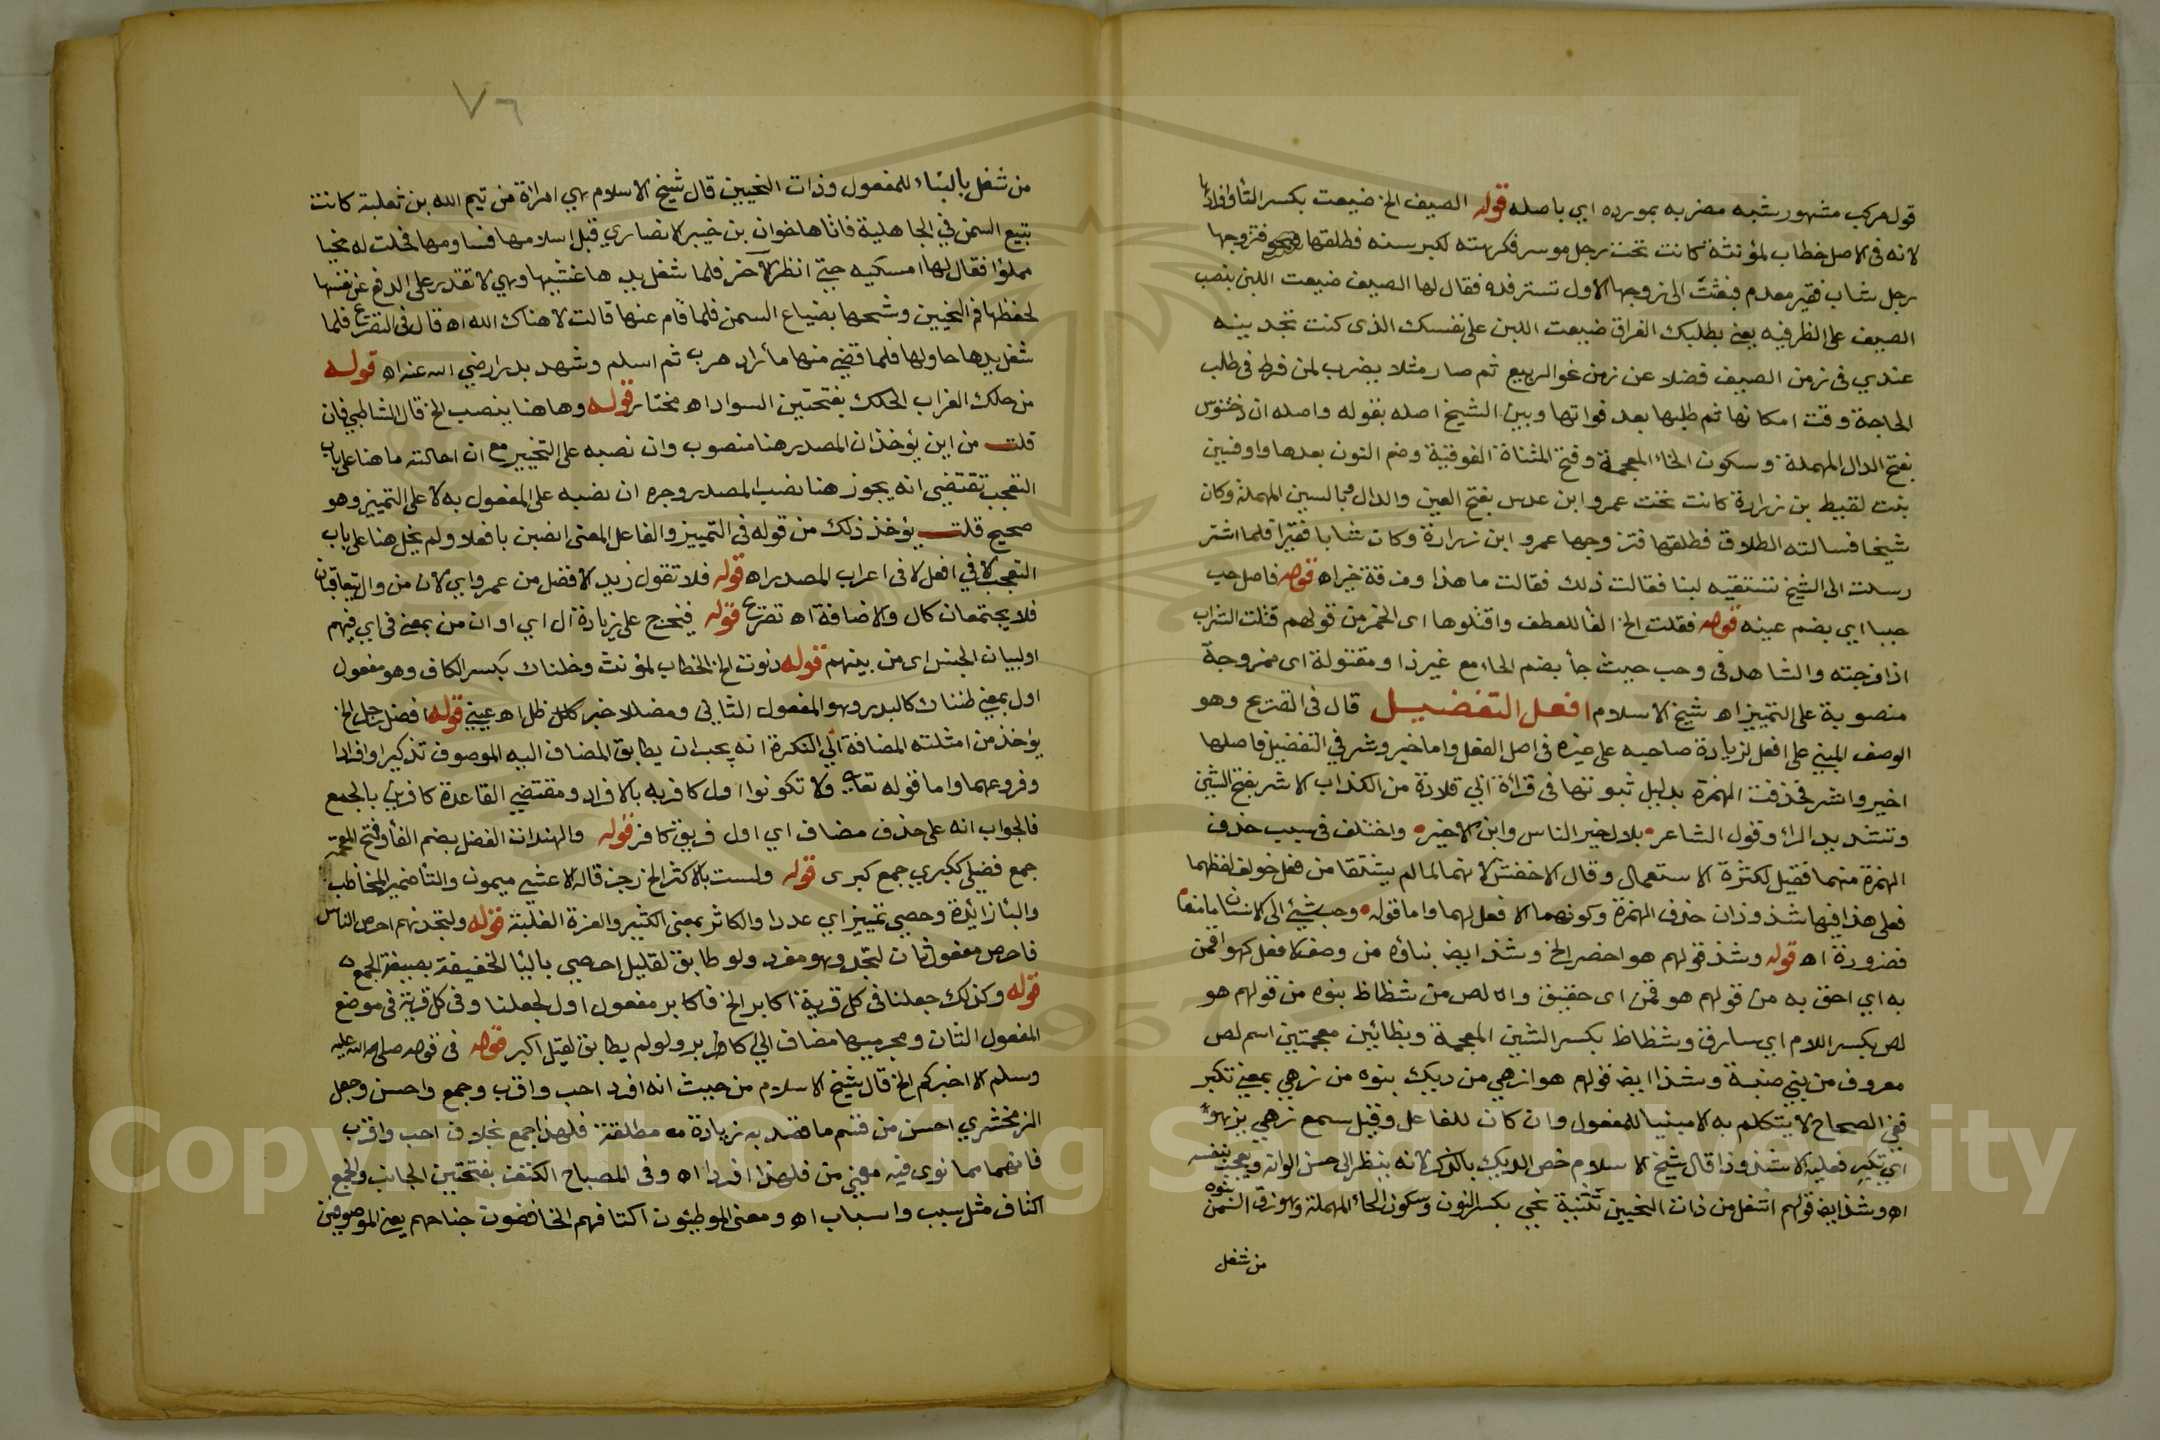 قول مركب مشهور شبه مضربه بمورده اي باصله قوله الصيف الخ ضيعت بكسر التا وافرادها
لانه فى الاصل خطاب لمؤنثة كانت تحت رجل موسر فكرهته لكبر سنه فطلقها فتزوجها
رجل شاب فقير معدم فبعثت الى زوجها الاول تسترفده فقال لها الصيف ضيعت اللبن بنصب
الصيف على الظرفيه يعنى بطلبك الفراق ضيعت اللبن على نفسك الذى كنت تجدينه
عندي فى زمن الصيف فضلا عن زمن نحو الربيع ثم صار مثلا يضرب لمن فرط فى طلب
الحاجة وقت امكانها ثم طلبها بعد فواتها وبين الشيخ اصله بقوله واصله ان دختنوس
بفتح الدال المهملة وسكون الخاء المعجمة وفتح المثناة الفوقية وضم النون بعدها واو فسين
بنت لقيط بن زرارة كانت تحت عمرو ابن عدس بفتح العين والدال وبالسين المهملة وكان
شيخا فسالته الطلاق فطلقها فتزوجها عمرو ابن زرارة وكان شابا فقيرا فلما اشتر
رسلت الى الشيخ تستقيه لبنا فقالت ذلك فقالت ما هذا ومذقة خير اه قوله فاصل حب
حببا اي بضم عينه قوله فقلت الخ الفا للعطف واقتلوها اى الخمر من قولهم قتلت الشراب
اذا مزجته والشاهد فى وحب حيث جأ بضم الحاء مع غير ذا ومقتولة اى ممزوجة
منصوبة على التمييز اه شيخ الاسلام افعل التفضيل قال فى التصريح وهو
الوصف المبني على افعل لزيادة صاحبه على غيره فى اصل الفعل واما خير وشر في التفضيل فاصلها
اخير واشر فحذفت الهمزة بدليل ثبوتها فى قراءة ابي قلابة من الكذاب الاشر بفتح الشين
وتشديد الرا وقول الشاعر بلال خير الناس وابن الاخير واختلف فى سبب حذف
الهمزة منهما فقيل لكثرة الاستعمال وقال الاخفش لانهما لما لم يشتقا من فعل خولف لفظهما
فعلى هذا فيها شذوذان حذف الهمزة وكونهما لا فعل لهما واما قوله وحب شيء الى الانسان ما منعا
فضرورة اه قوله وشذ قولهم هو اخصر الخ وشذ ايض بناؤه من وصف لا فعل كهو اقمن
به اي احق به من قولهم هو قمن اى حقيق واه لص من شظاظ بنوه من قولهم هو
لص بكسر اللام اي سارق وشظاظ بكسر الشين المعجمة وبظائين معجمتين اسم لص
معروف من بني ضبة وشذ ايض قولهم هو ازهى من ديك بنوه من زهي بمعنى تكبر
ففى الصحاح لا يتكلم به الا مبنيا للمفعول وان كان للفاعل وقيل سمع زهي يزهو
اي تكبر فعليه لا شذوذ قال شيخ الاسلام خص الديك بالذكر لانه ينظر الى حسن الوانه ويعجب بنفسه
اه وشذ ايض قولهم اشغل من ذات النحيين بنوه تثنية نحي بكسر النون وسكون الحاء المهملة وهو زق السمن
من شغل
٧٦
من شغل بالبناء للمفعول وذات النحيين قال شيخ الاسلام هي امرأة من تيم الله بن ثعلبة كانت
تبيع السمن في الجاهلية فاتاها خوان بن خيبر الانصاري قبل اسلامها فساومها فحلت له نحيا
مملوا فقال لها امسكيه حتى انظر الاخر فلما شغل يديها غشيها وهي لا تقدر على الدفع عن نفسها
لحفظها فم النحيين وشحها بضياع السمن فلما قام عنها قالت لا هناك الله اه قال فى التصريح فلما
شغل يديها حاولها فلما قضى منها ما أراد هرب ثم اسلم وشهد بدرا رضي الله عنه اه قوله
من حلك الغراب الحلك بفتحتين السواد اه مختار قوله وها هنا ينصب الخ قال الشاطبي فان
قلت من اين يؤخذ ان المصدر هنا منصوب وان نصبه على التمييز مع ان احالته ما هنا على باب
التعجب تقتضي انه يجوز هنا نصب المصدر وجره ان نصبه على المفعول به لا على التمييز وهو
صحيح قلت يؤخذ ذلك من قوله فى التمييز والفاعل المعنى انصبن بافعلا ولم يحل هنا على باب
التعجب الا في افعل لا فى اعراب المصدر اه قوله فلا تقول زيد الافضل من عمرو اي لان من وال يتعاقبان
فلا يجتمعان كال والاضافة اه تصريح قوله فيخرج على زيادة ال اي او ان من بمعنى فى اي فيهم
او لبيان الجنس اى من بينهم قوله دنوت الخ الخطاب لمؤنث وخلناك بكسر الكاف وهو مفعول
اول بمعنى ظنناك كالبدر وهو المفعول الثاني ومضللا خبر ظل اه عيني قوله افضل رجل الخ
يؤخذ من امثلته المضافة الي النكرة انه يجب ان يطابق المضاف اليه الموصوف تذكيرا وافرادا
وفروعهما واما قوله تعالى ولا تكونوا اول كافر به بالافراد ومقتضي القاعدة كافرين بالجمع
فالجواب انه على حذف مضاف اي اول فريق كافر قوله والهندات الفضل بضم الفا وفتح المعجمة
جمع فضلى ككبرى جمع كبرى قوله ولست بالاكثر الخ رجز قاله الاعشى ميمون والتأ ضمير المخاطب
والبا زائدة وحصي تمييز اي عددا والكاثر بمعنى الكثير والعزة الغلبة قوله ولتجدنهم احرص الناس
فاحرص مفعول ثان لتجد وهو مفرد ولو طابق لقليل احرصي باليا الخفيفة بصيغة الجمع
قوله وكذلك جعلنا فى كل قرية اكابر الخ فاكابر مفعول اول لجعلنا وفى كل قرية فى موضع
المفعول الثان ومجرميها مضاف الي اكابر ولو لم يطابق لقيل اكبر قوله فى قوله صلى الله عليه
وسلم الا اخبركم الخ قال شيخ الاسلام من حيث انه افرد احب واقرب وجمع احسن وجعل
الزمخشري احسن من قسم ما قصد به زيادة مطلقة فلهذا جمع بخلاف احب واقرب
فانهما مما نوى فيه معنى من فلهذا افردا اه وفى المصباح الكنف بفتحتين الجانب والجمع
اكناف مثل سبب واسباب اه ومعنى الموطئون اكنافهم الخافضون جناحهم يعنى الموصوفين
Copyright © King Saud University
1957